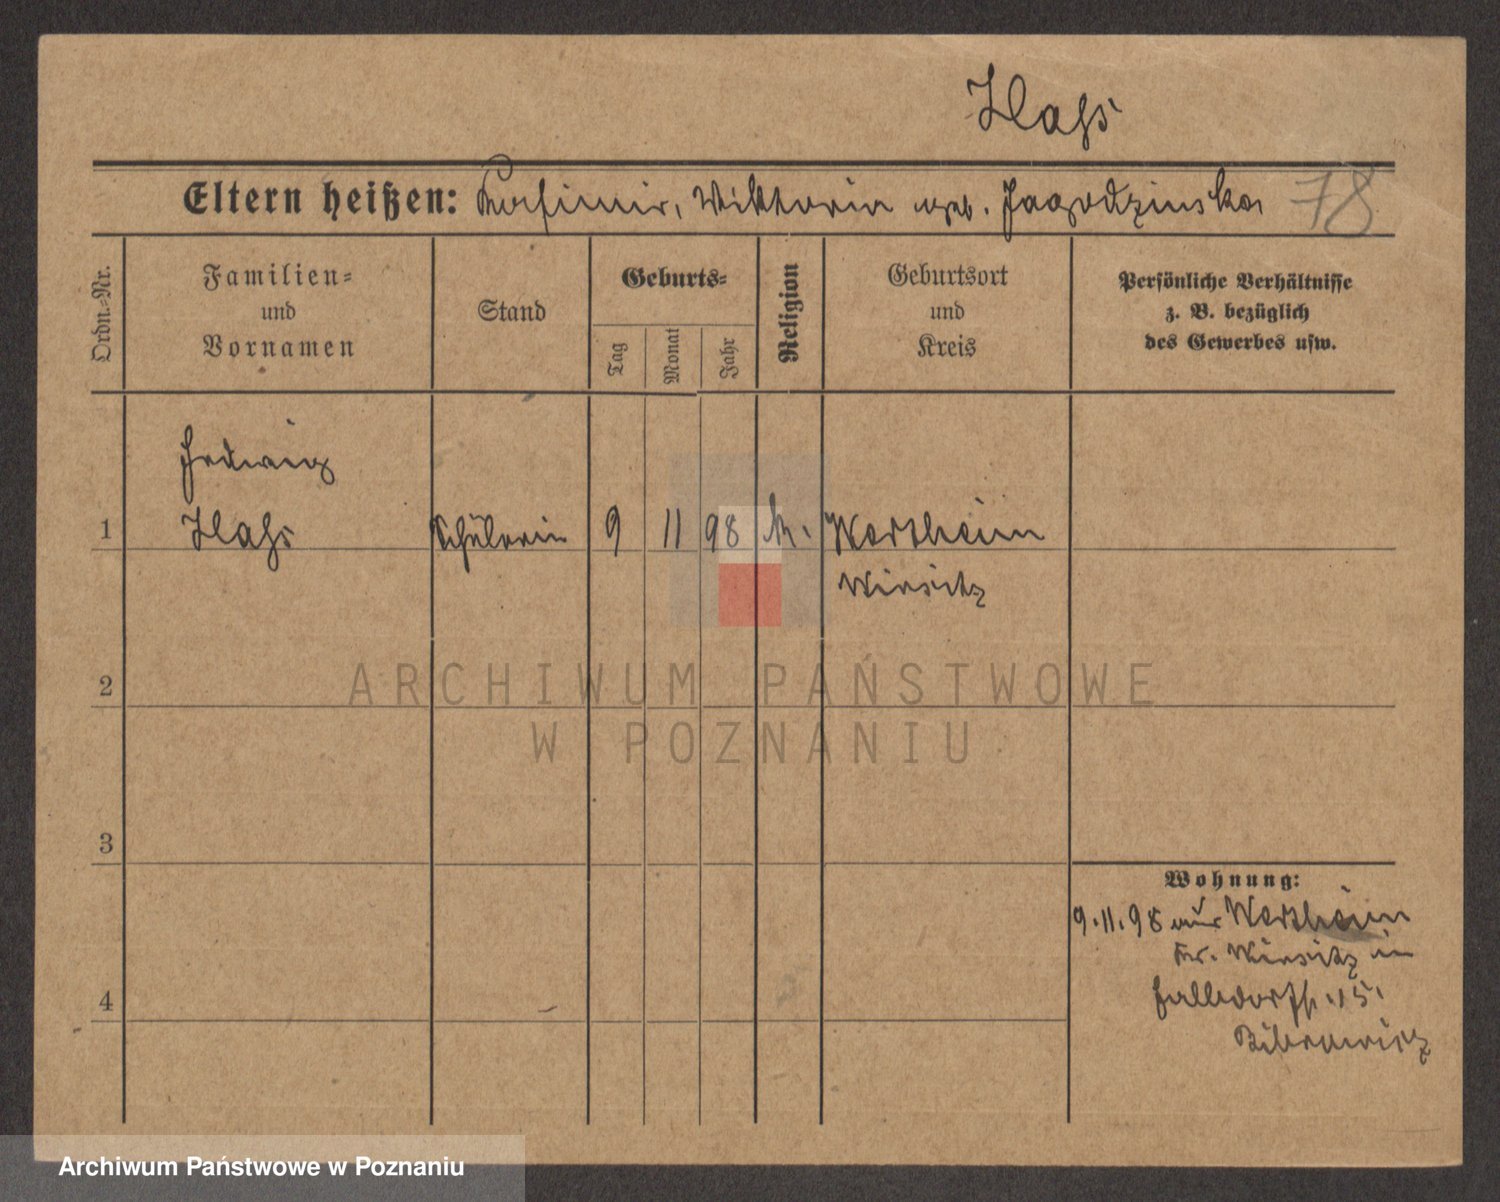 Hass
Eltern heißen: Kasimir, Wiktoria geb. Jagodzinska 78
Ordn.-Nr.
Familien-
und
Vornamen
Stand
Geburts-
Tag
Monat
Jahr
Religion
Geburtsort
und
Kreis
Persönliche Verhältnisse
z. B. bezüglich
des Gewerbes usw.
Hedwig
1 Hass Schülerin 9 11 98 k. Wertheim
Wirsitz
2
3
4
Wohnung:
9.11.98 aus Wertheim
Kr. Wirsitz in
15.
ARCHIWUM PAŃSTWOWE
W POZNANIU
Archiwum Państwowe w Poznaniu